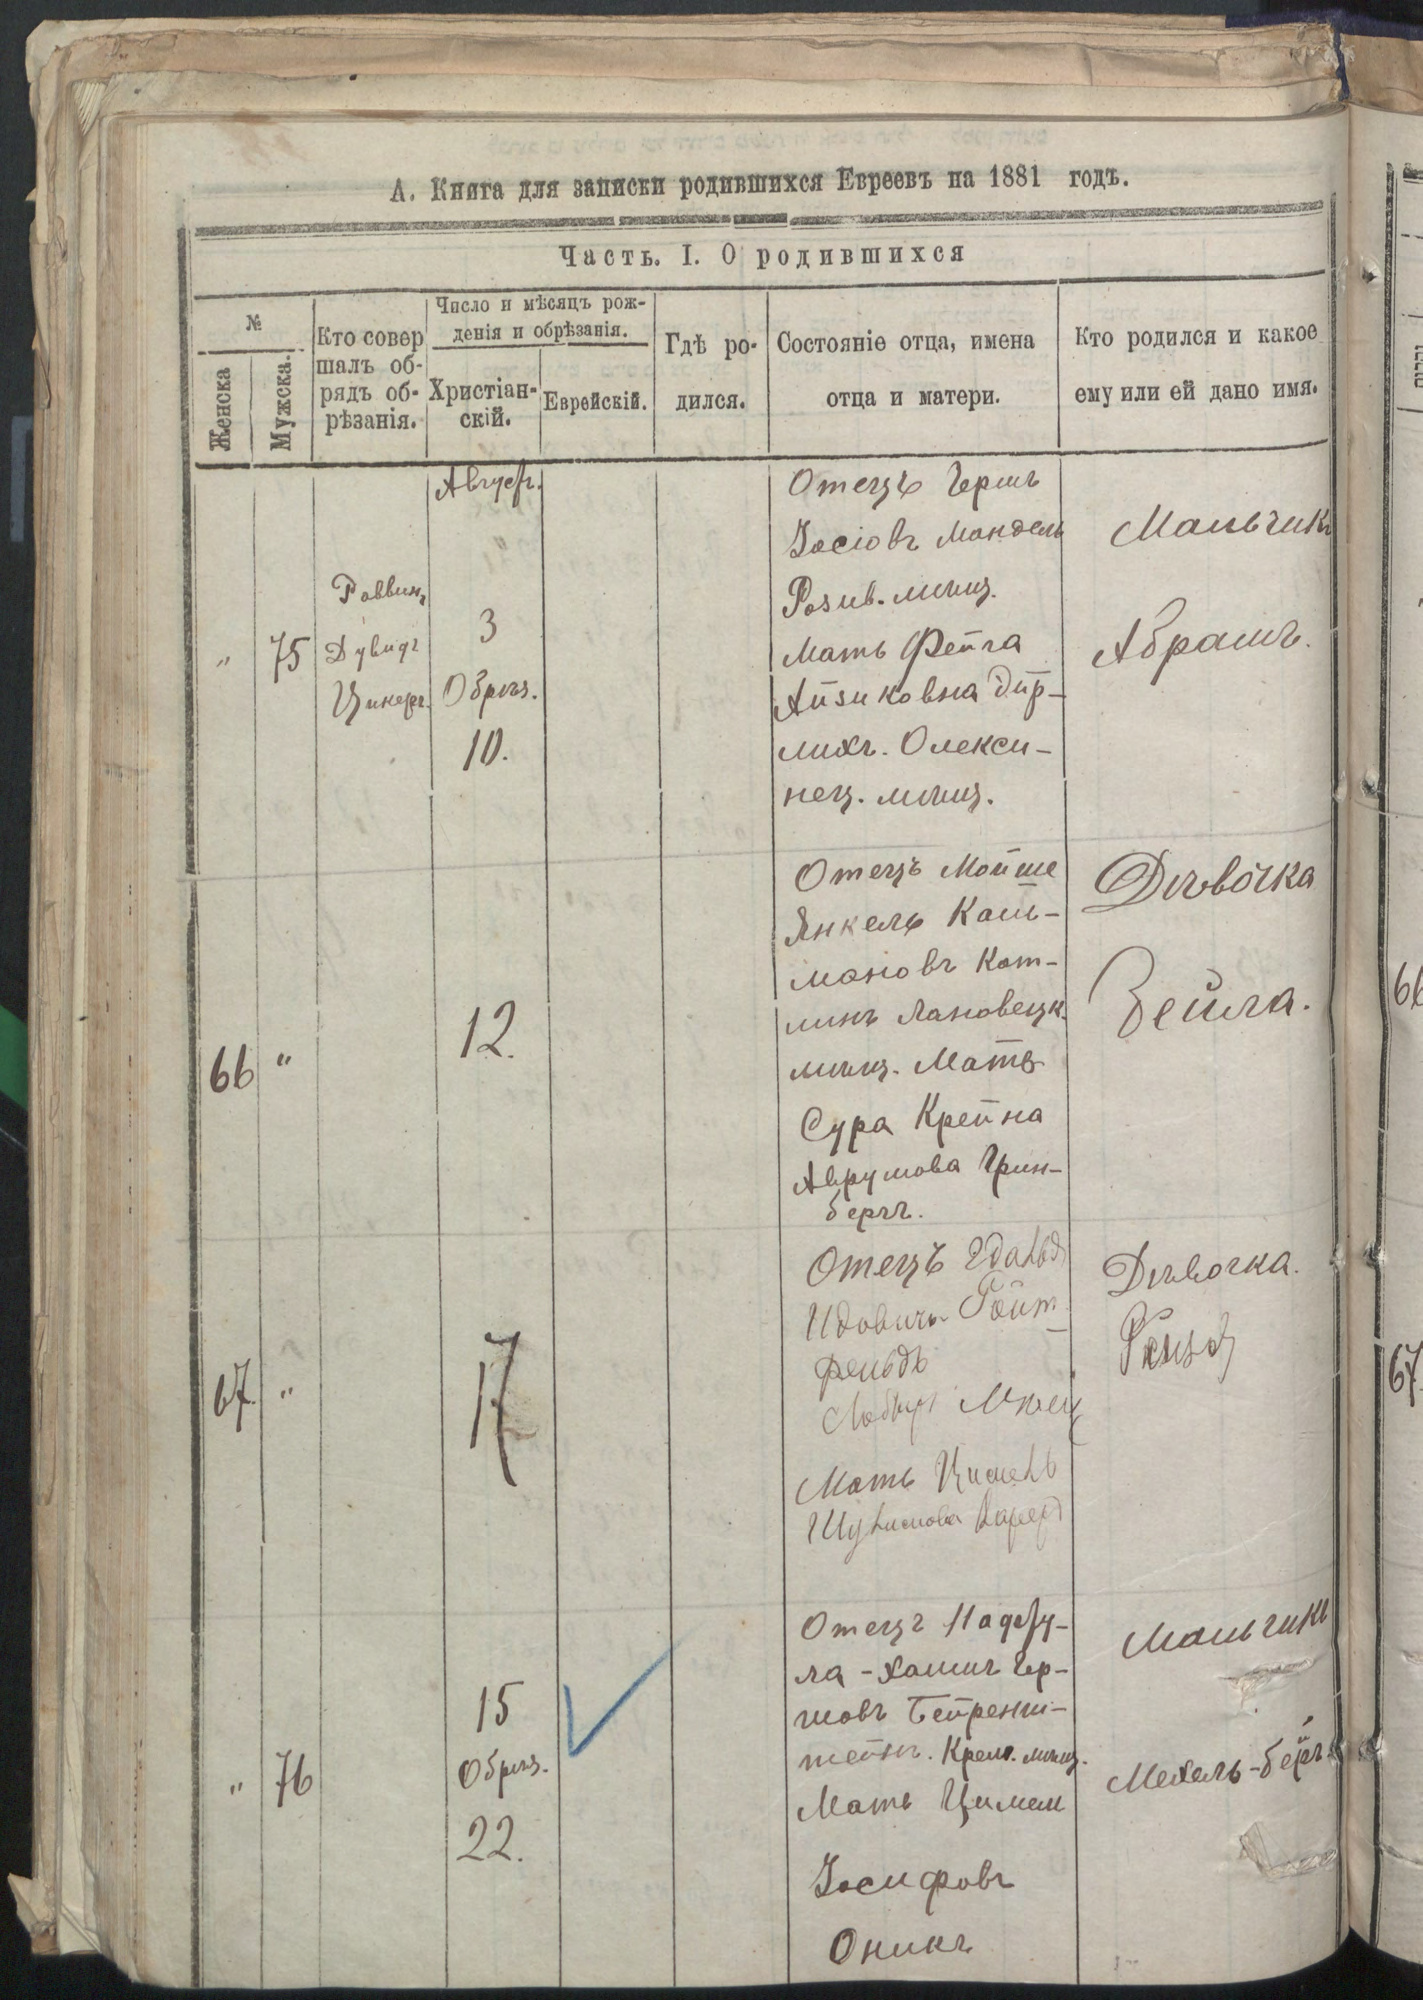 А. Книга для записки родившихся Евреевъ на 1881 годъ.
Часть. I. О родившихся
№
Женска
Мужска.
Кто совер
шалъ об-
рядъ об-
рѣзанія.
Число и мѣсяцъ рож-
денія и обрѣзанія.
Христіан-
скій.
Еврейскій.
Гдѣ ро-
дился.
Состояніе отца, имена
отца и матери.
Кто родился и какое
ему или ей дано имя.
Август.
„ 75
Раввинъ
Дувидъ
3
Обрѣз.
10.
Отецъ Гершъ
Іосіовъ Мандель
Мать Фейга
Айзиковна Дир-
лихъ. Олекси-
нец. мѣщ.
Мальчикъ
Абрамъ.
66 „
12.
Отецъ Мойше
Янкель Каль-
мановъ Кот-
ликъ Лановецк.
мѣщ. Мать
Сура Крейна
Аврумова Грин-
бергъ.
Дѣвочка
Бейла.
67. „
17
Отецъ
Идовичъ Гойт
фельдъ
Мать
Дѣвочка.
„ 76
15
Обрѣз.
22.
Отецъ Нафту-
ла-Хаимъ Гер-
шовъ Бейренш-
тейнъ. Крем. мѣщ.
Мать Цимель
Іосифовъ
Оникъ
Мальчикъ
Мехель-Беръ.
66
67